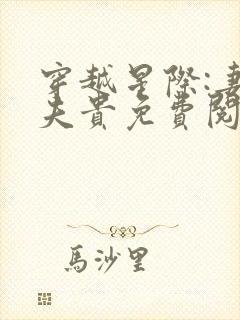 穿越星際:妻
夫貴免費閱
馬沙里